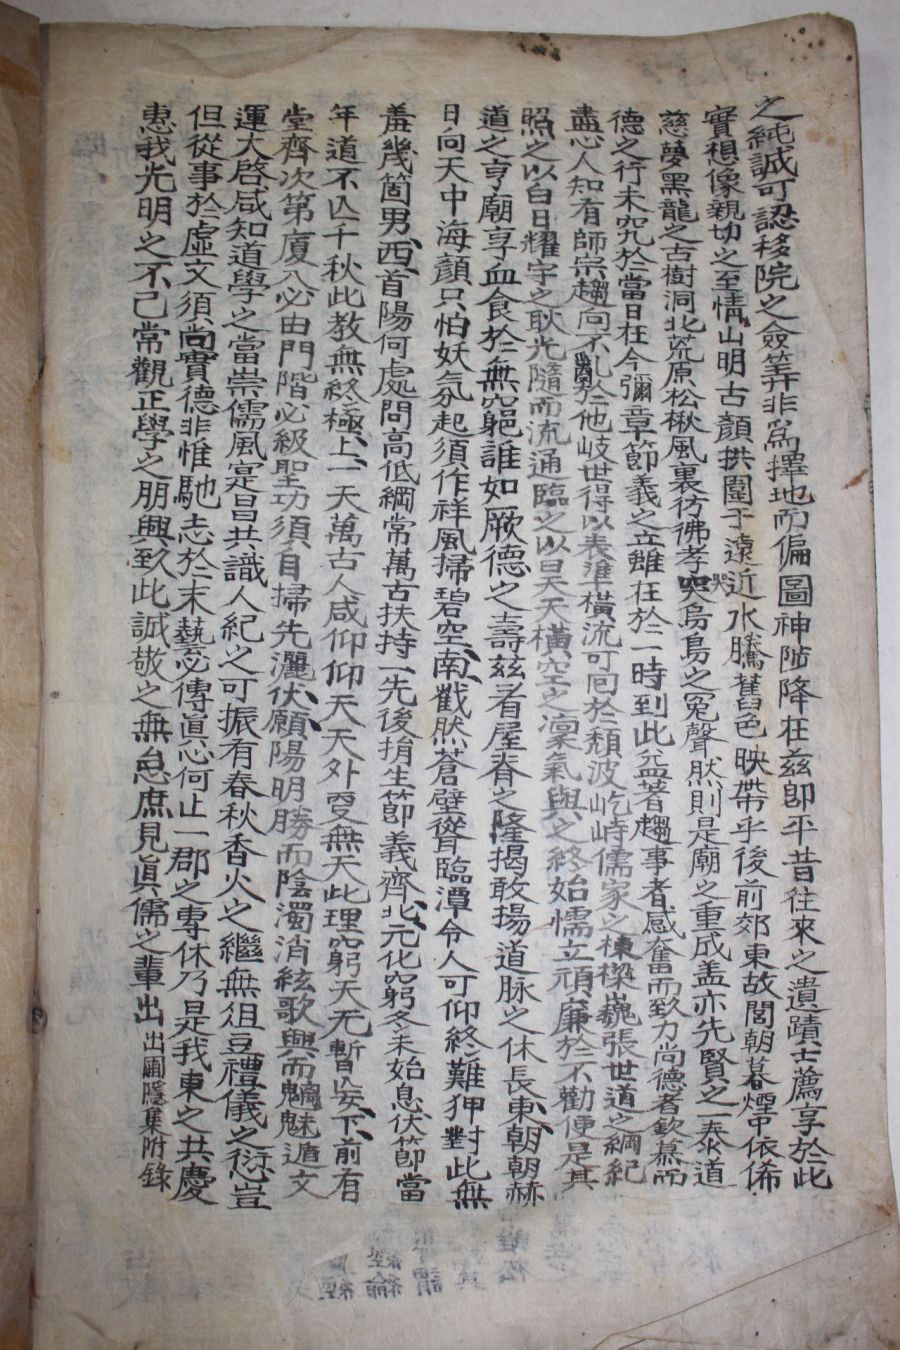 之純誠可認移院之僉筭非爲擇地而偏圖神陟降在玆卽平昔往來之遺蹟士薦享於此
實想像親切之至情山明古顔拱圍于遠近水騰舊色映帶乎後前郊東故閭朝暮煙中依俙
慈夢黑龍之古樹洞北荒原松楸風裏彷彿孝哭烏鳥之冤聲然則是廟之重成盖亦先賢之一泰道
德之行未究於當日在今彌章節義之立雖在於一時到此益著趨事者感奮而致力尚德者欽慕而
盡心人知有師宗趨向不亂於他岐世得以表準橫流可回於頹波屹峙儒家之棟樑巍張世道之綱紀
照之以白日耀宇之耿光隨而流通臨之以旻天橫空之凛氣與之終始懦立頑廉於不勸便是其
道之亨廟享血食於無窮誰如厥德之壽玆者屋脊之隆揭敢揚道脉之休長東朝朝赫
日向天中海顔只怕妖氛起須作祥風掃碧空南截然蒼壁聳臨潭令人可仰終難狎對此無
羞幾箇男西首陽何處問高低綱常萬古扶持一先後捐生節義齊北元化窮冬未始息伏節當
年道不亡千秋此教無終極上一天萬古人咸仰仰天天外更無天此理窮天无暫妄下前有
堂齊次第廈入必由門階必級聖功須自掃先灑伏願陽明勝而陰濁消絃歌興而魑魅遁文
運大啓咸知道學之當崇儒風寔昌共識人紀之可振有春秋香火之繼無俎豆禮儀之愆豈
但從事於虛文須尚實德非惟馳志於末藝必傳眞心何止一郡之專休乃是我東之共慶
惠我光明之不已常觀正學之朋興致此誠敬之無怠庶見眞儒之輩出 出圃隱集附錄